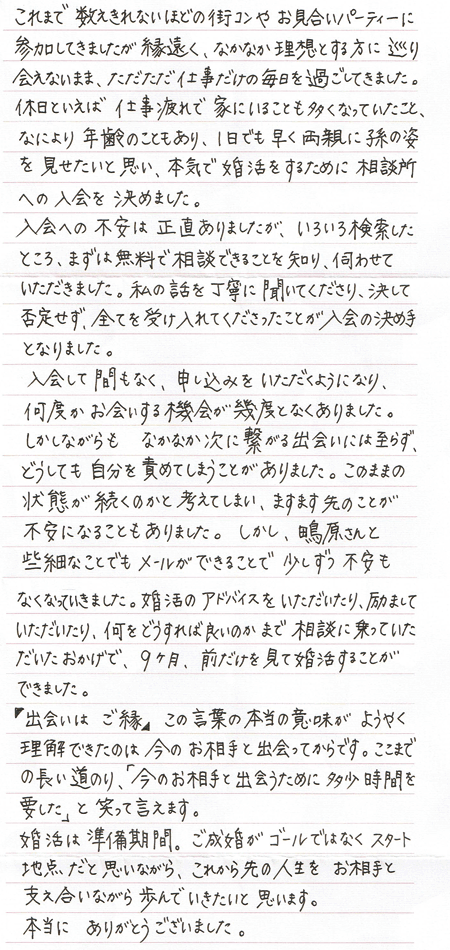 これまで 数えきれないほどの街コンや お見合いパーティーに
参加してきましたが 縁遠く、なかなか 理想とする方に 巡り
会えないまま、ただただ 仕事だけの毎日を過ごしてきました。
休日といえば 仕事疲れで 家にいることも多くなっていたこと、
なにより 年齢のこともあり、1日でも 早く両親に孫の姿
を 見せたいと思い、本気で婚活をするために 相談所
への 入会を 決めました。
入会への 不安は 正直ありましたが、いろいろ検索した
ところ、まずは無料で相談できることを知り、伺わせて
いただきました。私の話を丁寧に 聞いてくださり、決して
否定せず、全てを受け入れてくださったことが入会の決め手
となりました。
入会して 間もなく、申し込みを いただくようになり、
何度か お会いする機会が 幾度となくありました。
しかしながらも なかなか次に 繋がる出会いには至らず、
どうしても 自分を 責めてしまうことがありました。このままの
状態が 続くのかと 考えてしまい、ますます先のことが
不安になることもありました。しかし、鴫原さんと
些細なことでも メールができることで 少しずつ 不安も
なくなっていきました。婚活の アドバイスを いただいたり、励まして
いただいたり、何をどうすれば良いのか まで 相談に乗っていた
だいた おかげで、9ヶ月、前だけを見て婚活することが
できました。
『出会いは ご縁』この言葉の本当の意味が ようやく
理解できたのは 今の お相手と出会ってからです。ここまで
の長い道のり、「今のお相手と出会うために 多少時間を
要した」と 笑って言えます。
婚活は 準備期間。ご成婚が ゴールではなく スタート
地点だと 思いながら、これから先の人生を お相手と
支え合いながら 歩んでいきたいと 思います。
本当に ありがとうございました。